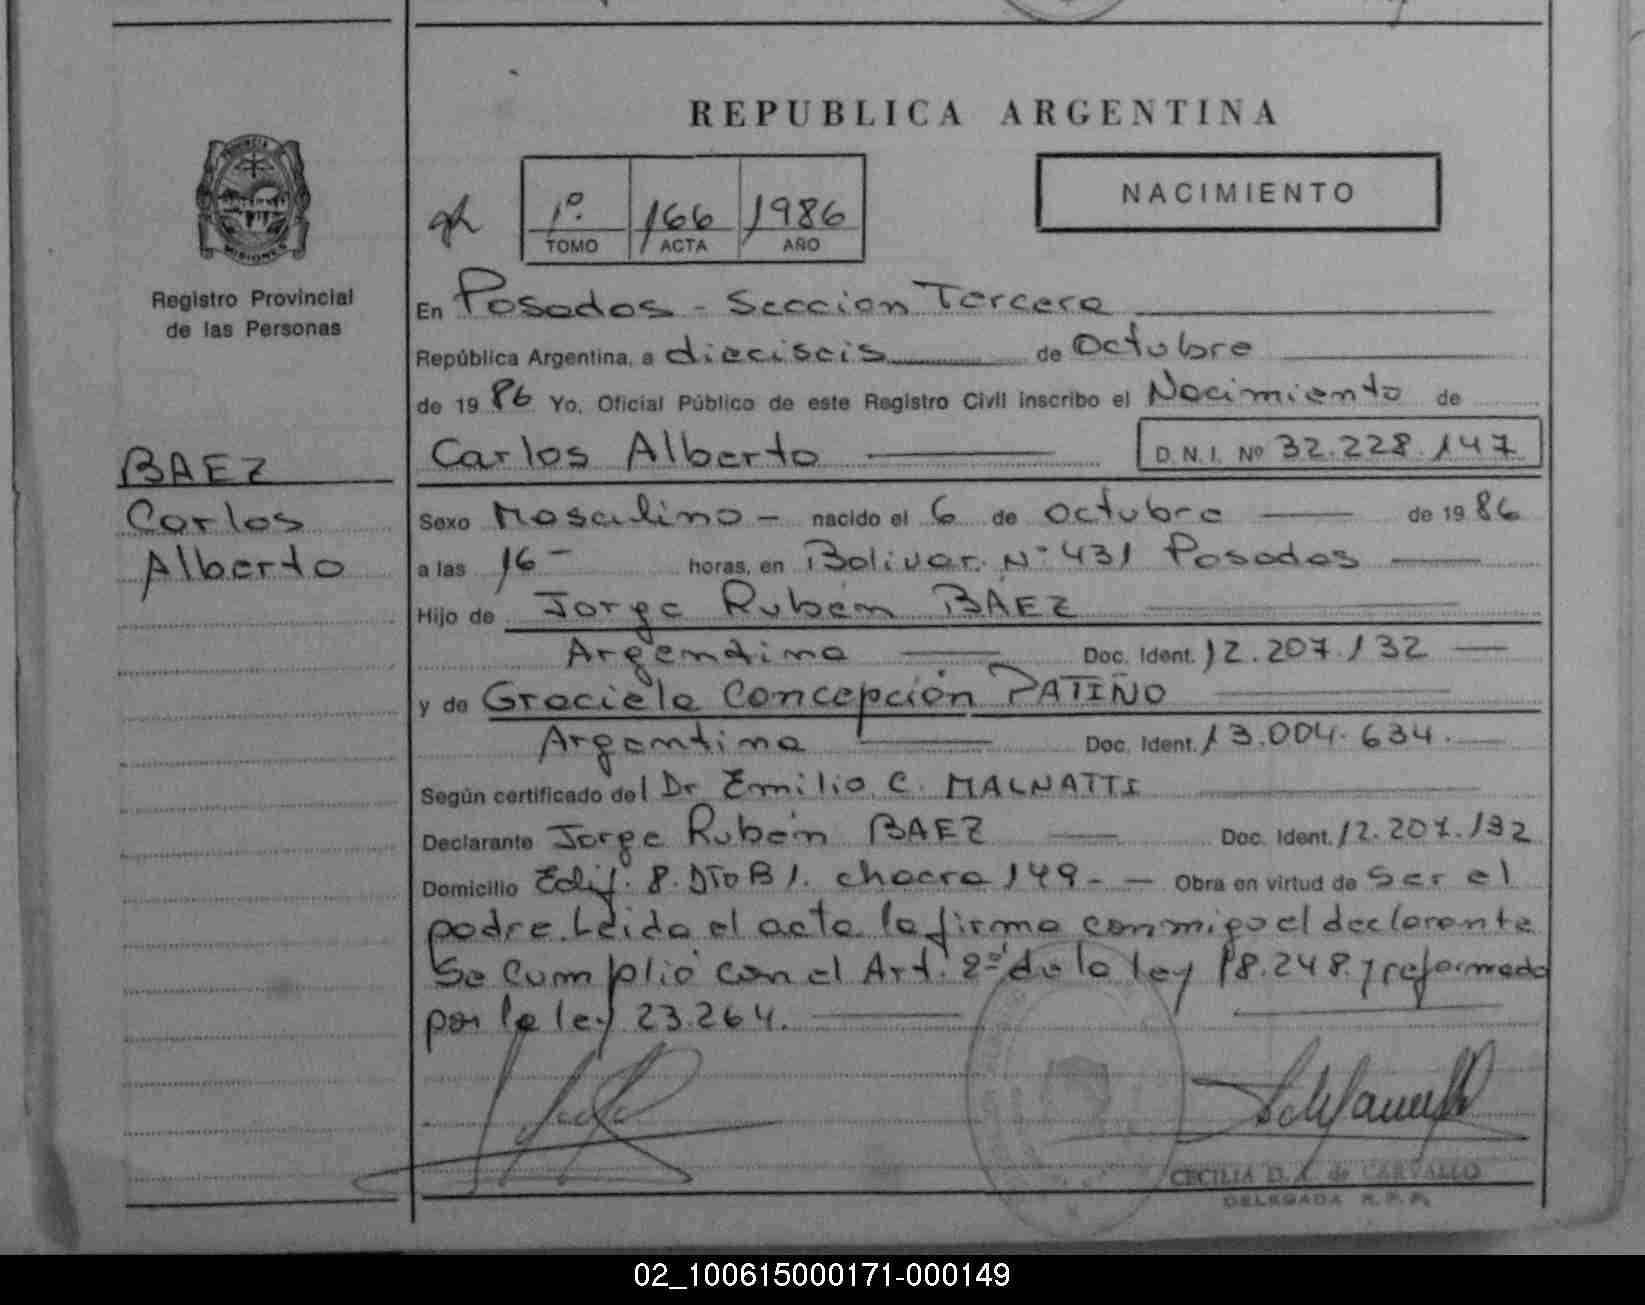 REPUBLICA ARGENTINA
PROVINCIA
MISIONES
Registro Provincial
de las Personas
1º. 166 1986
TOMO ACTA AÑO
NACIMIENTO
En Posadas - Sección Tercera
República Argentina, a dieciseis de Octubre
de 19 86 Yo, Oficial Público de este Registro Civil inscribo el Nacimiento de
Carlos Alberto D.N.I. Nº 32.228.147
BAEZ
Carlos
Alberto
Sexo Masculino - nacido el 6 de octubre de 19 86
a las 16 - horas, en Bolivar. Nº 431 Posadas
Hijo de Jorge Rubén BAEZ
Argentina Doc. Ident. 12.207.132
y de Graciela Concepción PATIÑO
Argentina Doc. Ident. 13.004.634.
Según certificado del Dr Emilio C. MALNATTI
Declarante Jorge Rubén BAEZ Doc. Ident. 12.207.132
Domicilio Edif. 8. DTO B1. chacra 149 - - Obra en virtud de ser el
padre. Leida el acta la firma conmigo el declarante
Se cumplió con el Art. 2º de la ley 18.248. y reformada
por la ley 23.264.
CECILIA D. A. de CARVALLO
DELEGADA R.P.P.
02_100615000171-000149